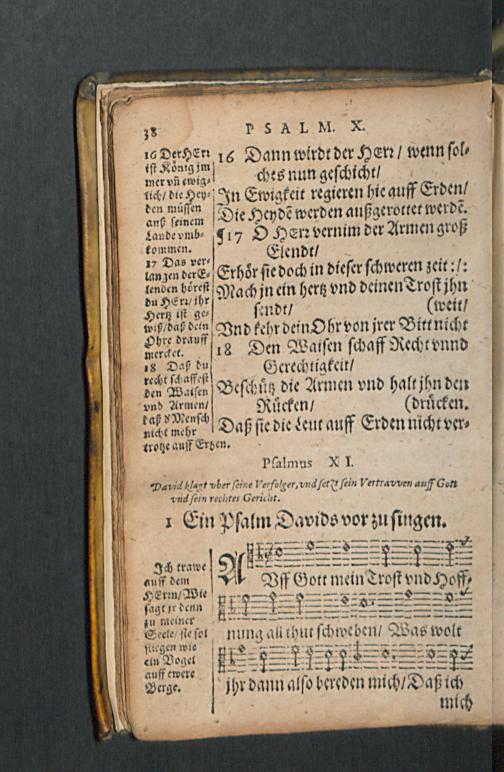 38
PSALM. X.
16 Der HErr
ist König jm
mer vñ ewig-
lich/ die Hey-
den müssen
auß seinem
Lande vmb-
kommen.
17 Das ver-
langen der E-
lenden hörest
du HErr/ ihr
Hertz ist ge-
wiß/ daß dein
Ohre drauff
mercket.
18 Daß du
recht schaffest
den Waisen
vnd Armen/
daß d'Mensch
nicht mehr
trotze auff Erden.
16 Dann wirdt der HErr/ wenn sol-
ches nun geschicht/
In Ewigkeit regieren hie auff Erden/
Die Heydē werden außgerottet werdē.
¶17 O HErr vernim der Armen groß
Elendt/
Erhör sie doch in dieser schweren zeit :/:
Mach jn ein hertz vnd deinen Trost jhn
sendt/ (weit/
Vnd kehr dein Ohr von jrer Bitt nicht
18 Den Waisen schaff Recht vnnd
Gerechtigkeit/
Beschütz die Armen vnd halt jhn den
Rücken/ (drücken.
Daß sie die Leut auff Erden nicht ver-
Psalmus XI.
David klagt vber seine Verfolger, vnd setzt sein Vertravven auff Gott
vnd sein rechtes Gericht.
1 Ein Psalm Davids vor zu singen.
Ich trawe
auff dem
HErrn/ Wie
sagt jr denn
zu meiner
Seele/ sie sol
fliegen wie
ein Vogel
auff ewere
Berge.
AVff Gott mein Trost vnd Hoff-
nung all thut schweben/ Was wolt
jhr dann also bereden mich/ Daß ich
mich